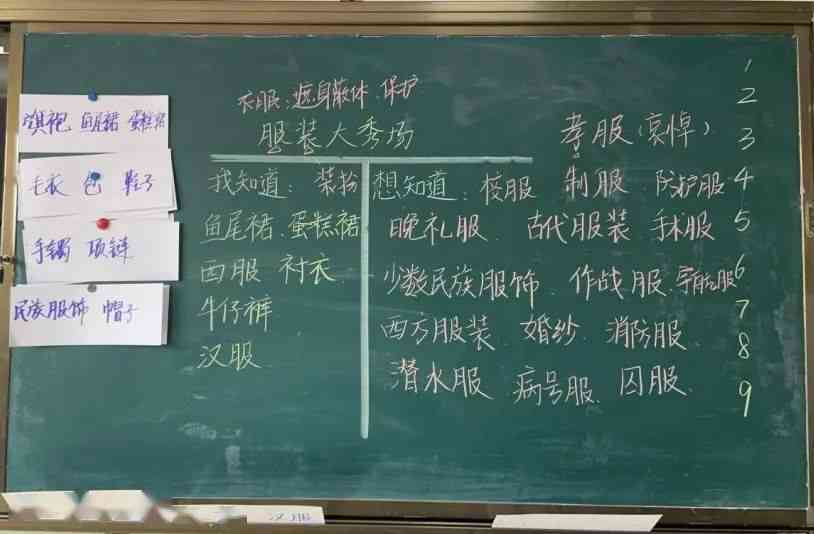 旗袍 鱼尾裙 蛋糕裙
毛衣 包 鞋子
手镯 项链
民族服饰 帽子
衣服：遮身蔽体、保护
服装大秀场
孝服（哀悼）
我知道：装扮
鱼尾裙、蛋糕裙
西服 衬衣
牛仔裤
汉服
想知道：校服 制服 防护服
晚礼服 古代服装 手术服
少数民族服饰 作战服、宇航服
西方服装 婚纱 消防服
潜水服 病号服、囚服
1
2
3
4
5
6
7
8
9